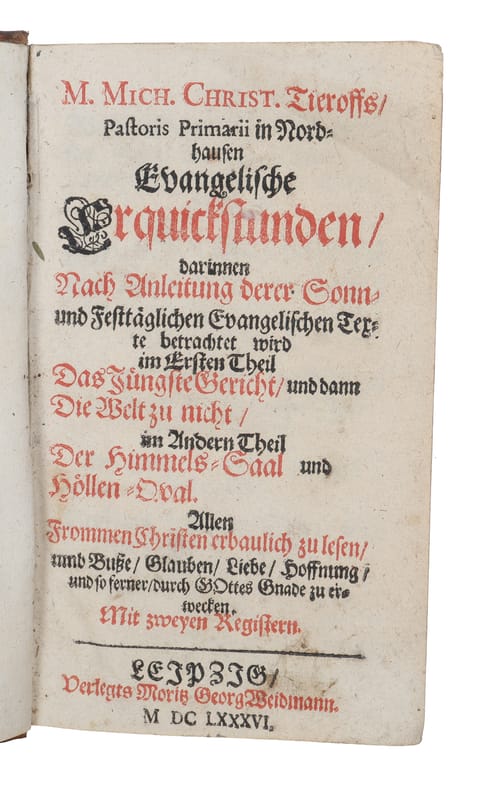 M. MICH. CHRIST. Tieroffs/
Pastoris Primarii in Nord-
hausen
Evangelische
Erquickstunden/
darinnen
Nach Anleitung derer Sonn-
und Festtäglichen Evangelischen Tex-
te betrachtet wird
im Ersten Theil
Das Jüngste Gericht/ und dann
Die Welt zu nicht/
im Andern Theil
Der Himmels-Saal und
Höllen-Qval.
Allen
Frommen Christen erbaulich zu lesen/
unnd Buße/ Glauben/ Liebe/ Hoffnung/
und so ferner/durch GOttes Gnade zu er-
wecken.
Mit zweyen Registern.
LEIPZIG/
Verlegts Moritz Georg Weidmann.
M DC LXXXVI.